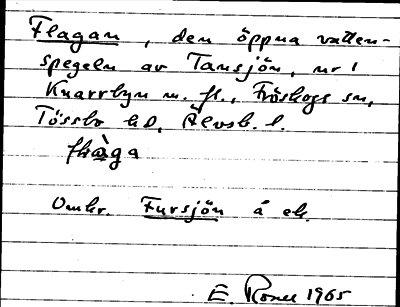 Flagan, den öppna vatten-
spegeln av Tansjön, nr 1
Knarrbyn m. fl., Fröskogs sn,
Tössbo hd, Älvsb. l.
Omkr. Fursjön å ek.
E. 1965